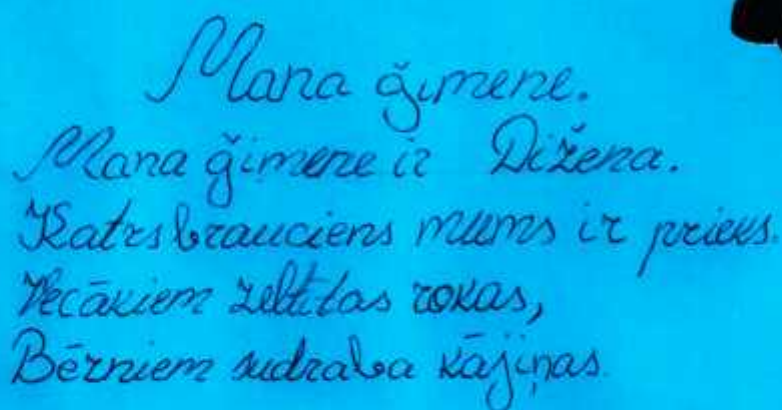 Mana ģimene.
Mana ģimene ir Dižena.
Katrs brauciens mums ir prieks.
Vecākiem zeltītas rokas,
Bērniem sudraba kājiņas.